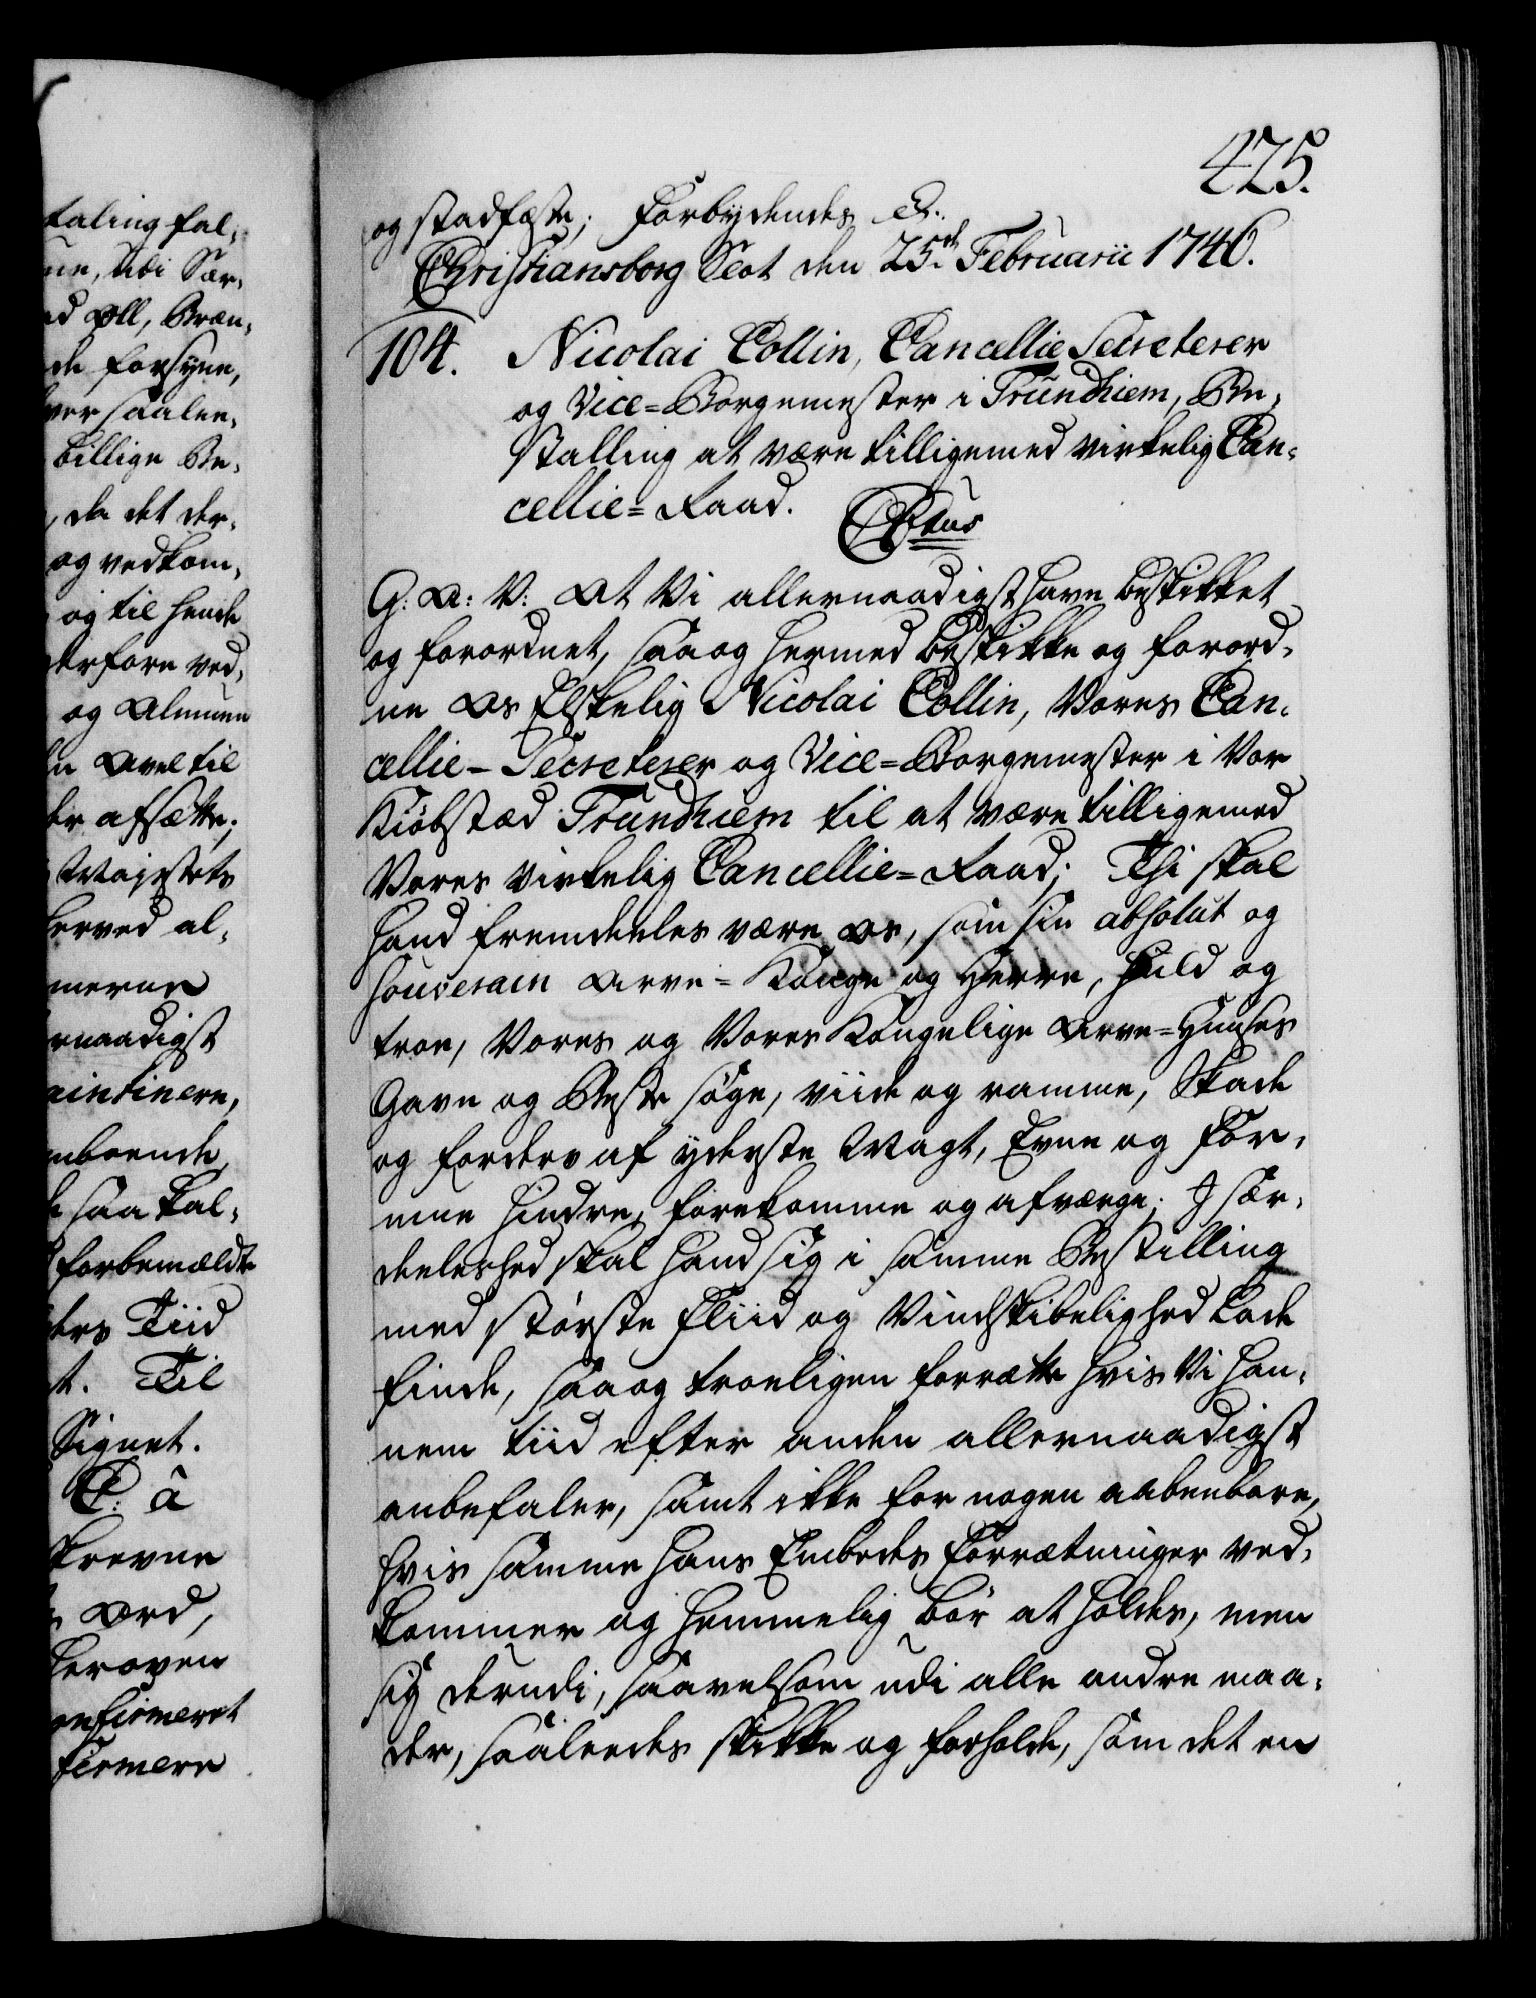 425.
og stadfæste; Forbydendes &.
Christiansborg Slot den 25de Februarii 1746.
104. Nicolai Collin, Cancellie Secreterer
og Vice-Borgemester i Trundhiem, Be-
stalling at være tilligemed virkelig Can-
cellie-Raad.
G: A: V: At Vi allernaadigst have beskikket
og forordnet, saa og hermed beskikke og forord-
ne Os Elskelig Nicolai Collin, Vores Can-
cellie-Secreterer og Vice-Borgemester i Vor
Kiøbstæd Trundhiem til at være tilligemed
Vores virkelig Cancellie-Raad; Thi skal
hand fremdeeles være Os, som sin absolut og
souverain Arve-Konge og Herre, huld og
troe, Vores og Vores Kongelige Arve-Huuses
Gavn og Beste søge, viide og ramme, Skade
og Forderv af yderste Magt, Evne og For-
mue hindre, forekomme og afværge; I sær-
deeleshed skal hand sig i samme Bestilling
med største Fliid og Vindskibelighed lade
finde, saa og troeligen forrætte hvis Vi han-
nem tiid efter anden allernaadigst
anbefaler, samt ikke for nogen aabenbare,
hvis samme hans Embedes Forrætninger ved-
kommer og hemmelig bør at holdes, men
sig derudi, saavelsom udi alle andre maa-
der, saaledes skikke og forholde, som det en
taling fal-
ne, udi Sær-
ad Øll, Bræn-
de forsyne,
ver saalen-
billige Be-
, da det der-
og vedkom-
og til hende
erfore ved-
og Almuen
n Avel til
er afsætte;
Majestets
herved al-
merne
rnaadigst
aintinere,
nboende
saa kal-
forbemældte
ers Tiid
t. Til
Signet.
C: à
skrevne
Ord,
heroven
onfirmeret
firmere